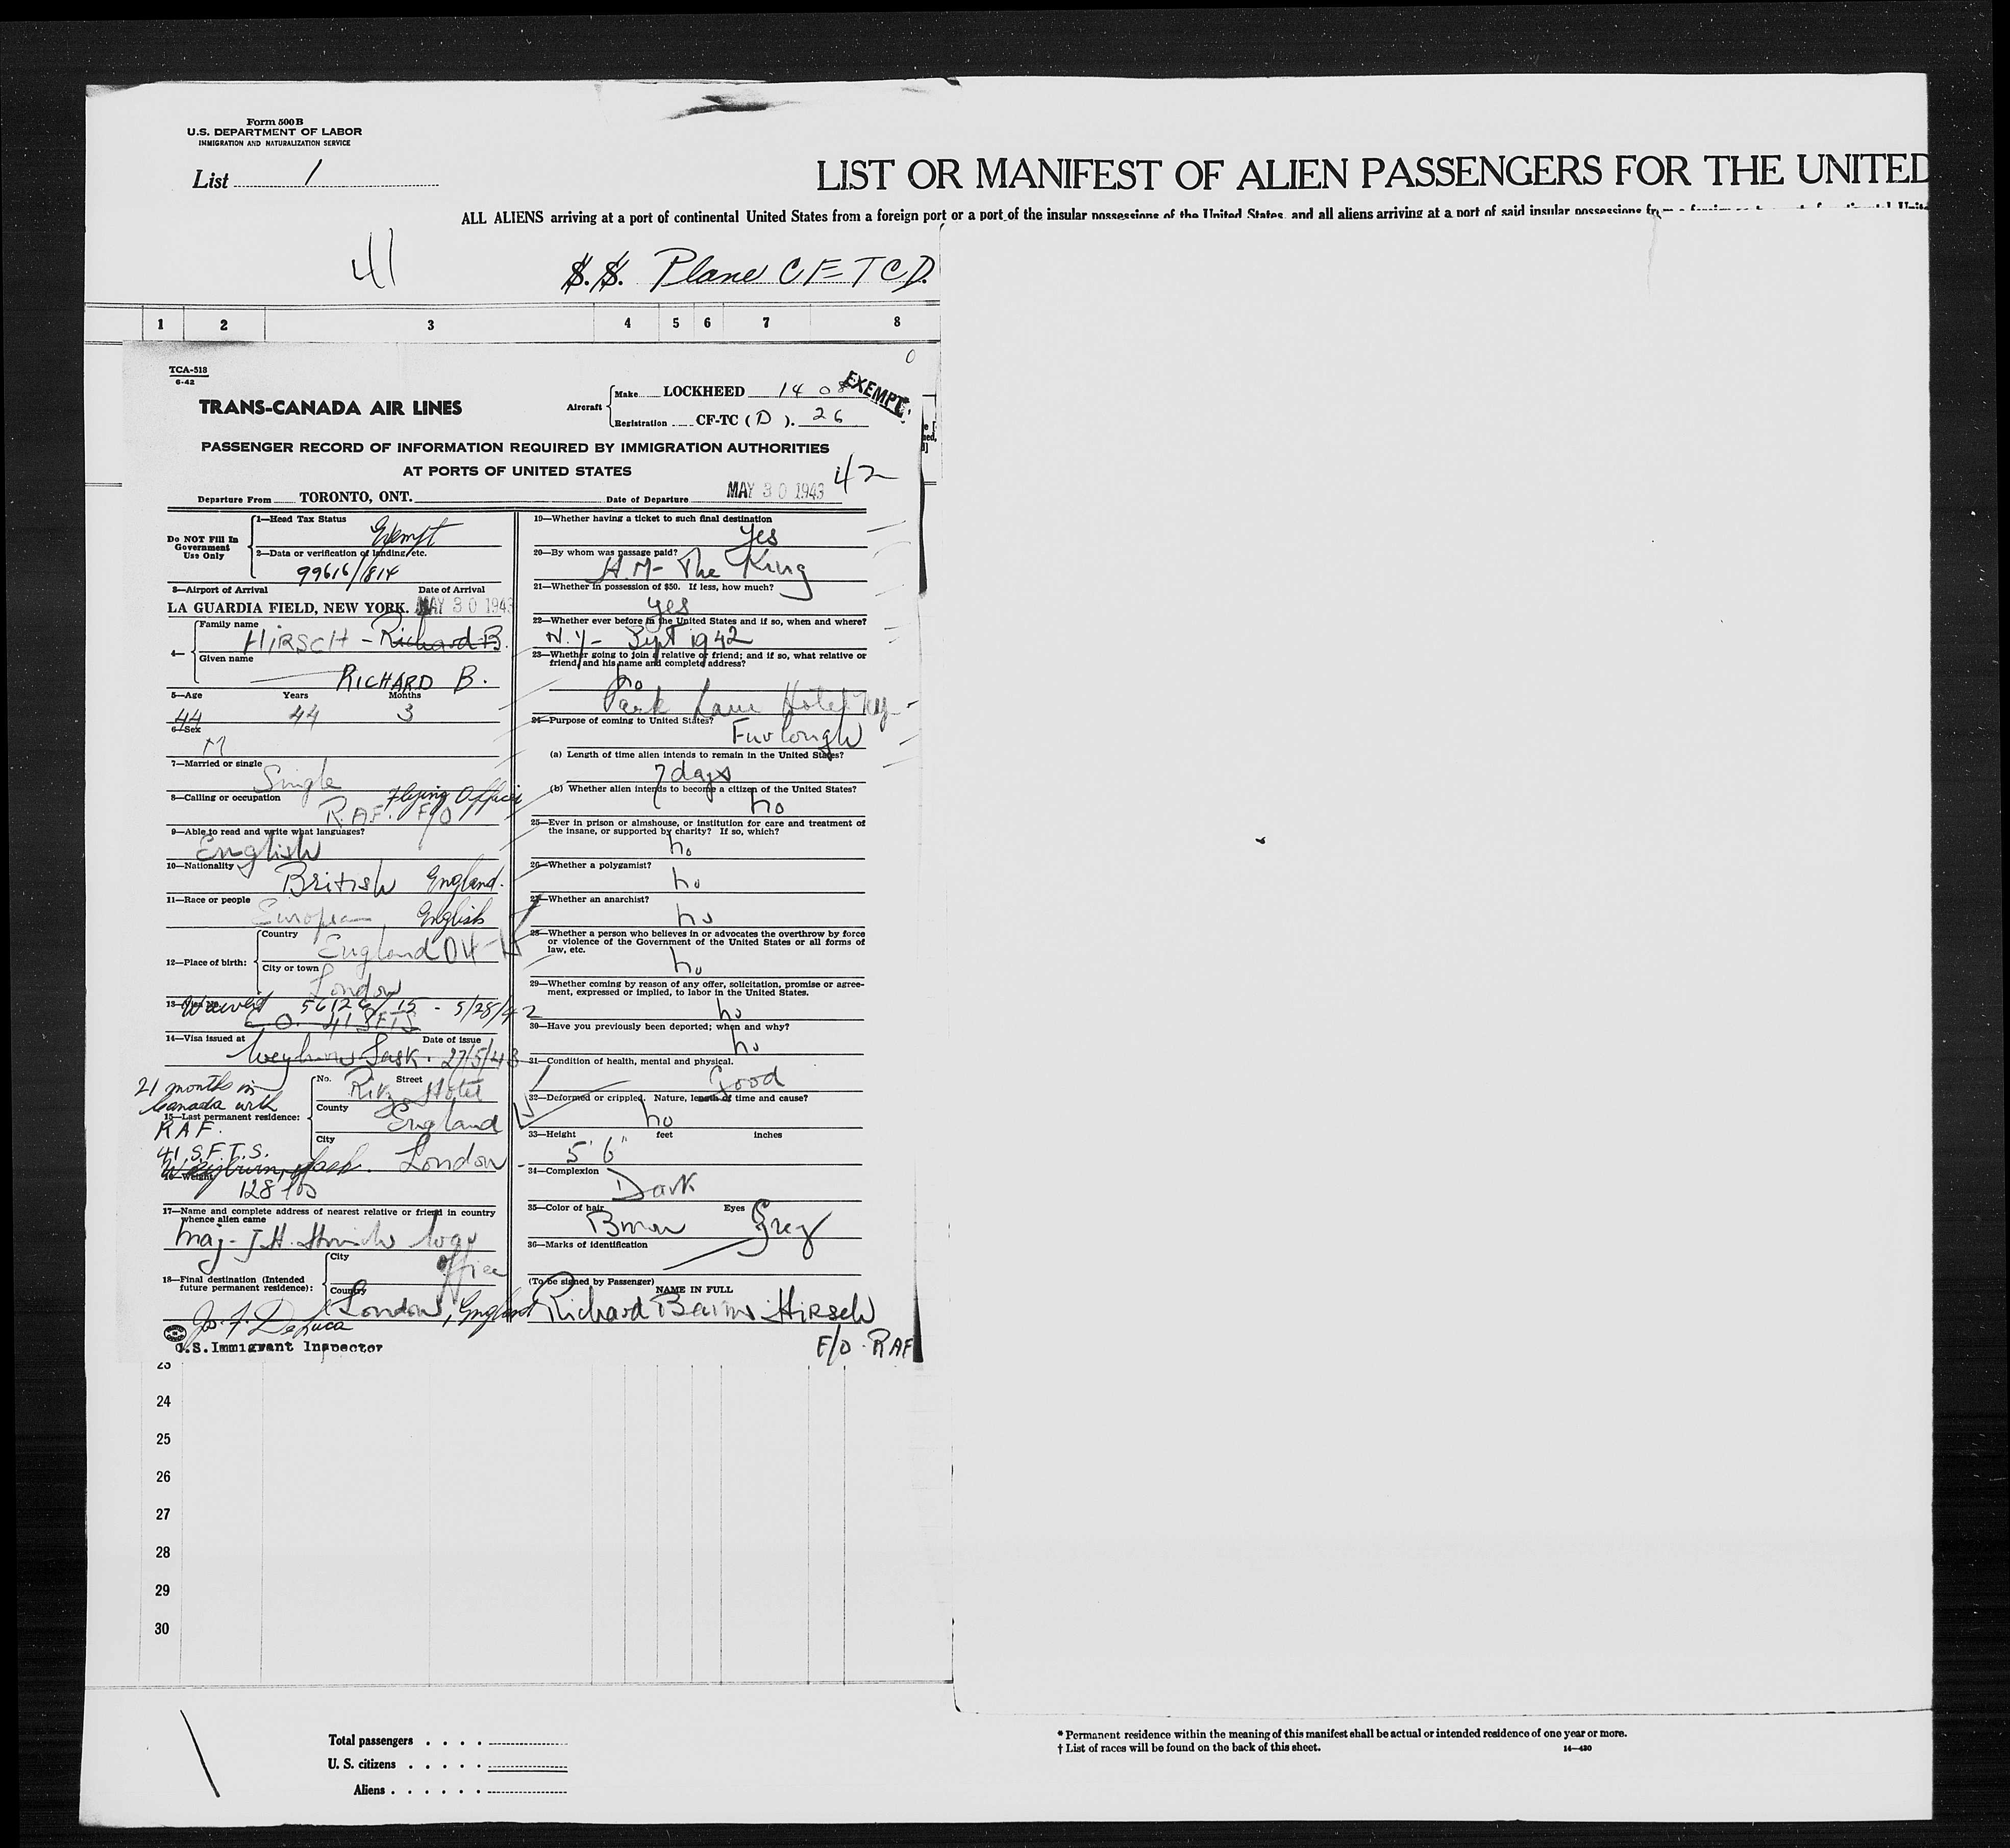 Form 500 B
U.S. DEPARTMENT OF LABOR
IMMIGRATION AND NATURALIZATION SERVICE
List 1
LIST OR MANIFEST OF ALIEN PASSENGERS FOR THE UNITED
ALL ALIENS arriving at a port of continental United States from a foreign port or a port of the insular possessions of the United States, and all aliens arriving at a port of said insular possessions
41
S.S. Plane CF-TCD.
1 2 3 4 5 6 7 8
TCA-518
6-42
TRANS-CANADA AIR LINES
Aircraft
Make LOCKHEED 14 08
EXEMPT
Registration CF-TC (D). 26
PASSENGER RECORD OF INFORMATION REQUIRED BY IMMIGRATION AUTHORITIES
AT PORTS OF UNITED STATES
42
Departure From TORONTO, ONT. Date of Departure MAY 30 1943
Do NOT Fill In Government Use Only
1—Head Tax Status
Exempt
2—Data or verification of landing, etc.
99616/814
3—Airport of Arrival Date of Arrival
LA GUARDIA FIELD, NEW YORK. MAY 30 1943
4—
Family name
HIRSCH - Richard B.
Given name
RICHARD B.
5—Age Years Months
44 44 3
6—Sex
M
7—Married or single
Single
8—Calling or occupation
Flying Officer
R.A.F. F/O
9—Able to read and write what languages?
English
10—Nationality
British England.
11—Race or people
European English
12—Place of birth:
Country
England
City or town
London
13—Visa No.
Waived 56126/15 - 5/28/42
C.O. 41 SFTS
14—Visa issued at Date of issue
Weyburn Sask. 27/5/43
21 months in
Canada with
RAF.
41 S.F.T.S.
Weyburn, Sask.
15—Last permanent residence:
No. Street
Ritz Hotel
County
England
City
London
16—Weight
128 lbs
17—Name and complete address of nearest relative or friend in country
whence alien came
Maj - J.H. Hirsch War
Office
18—Final destination (Intended
future permanent residence):
City
Country
London, England
Jo. F. De Luca
U.S. Immigrant Inspector
19—Whether having a ticket to such final destination
yes
20—By whom was passage paid?
H.M- The King
21—Whether in possession of $50. If less, how much?
yes
22—Whether ever before in the United States and if so, when and where?
N.Y- Sept 1942
23—Whether going to join a relative or friend; and if so, what relative or
friend, and his name and complete address?
no
Park Lane Hotel NY-
24—Purpose of coming to United States?
Furlough
(a) Length of time alien intends to remain in the United States?
7 days
(b) Whether alien intends to become a citizen of the United States?
no
25—Ever in prison or almshouse, or institution for care and treatment of
the insane, or supported by charity? If so, which?
no
26—Whether a polygamist?
no
27—Whether an anarchist?
no
28—Whether a person who believes in or advocates the overthrow by force
or violence of the Government of the United States or all forms of
law, etc.
no
29—Whether coming by reason of any offer, solicitation, promise or agree-
ment, expressed or implied, to labor in the United States.
no
30—Have you previously been deported; when and why?
no
31—Condition of health, mental and physical.
Good
32—Deformed or crippled. Nature, length of time and cause?
no
33—Height feet inches
5' 6"
34—Complexion
Dark
35—Color of hair Eyes
Brown Grey
36—Marks of identification
(To be signed by Passenger)
NAME IN FULL
Richard Hirsch
F/O. RAF
23
24
25
26
27
28
29
30
Total passengers
U. S. citizens
Aliens
* Permanent residence within the meaning of this manifest shall be actual or intended residence of one year or more.
† List of races will be found on the back of this sheet.
14—430